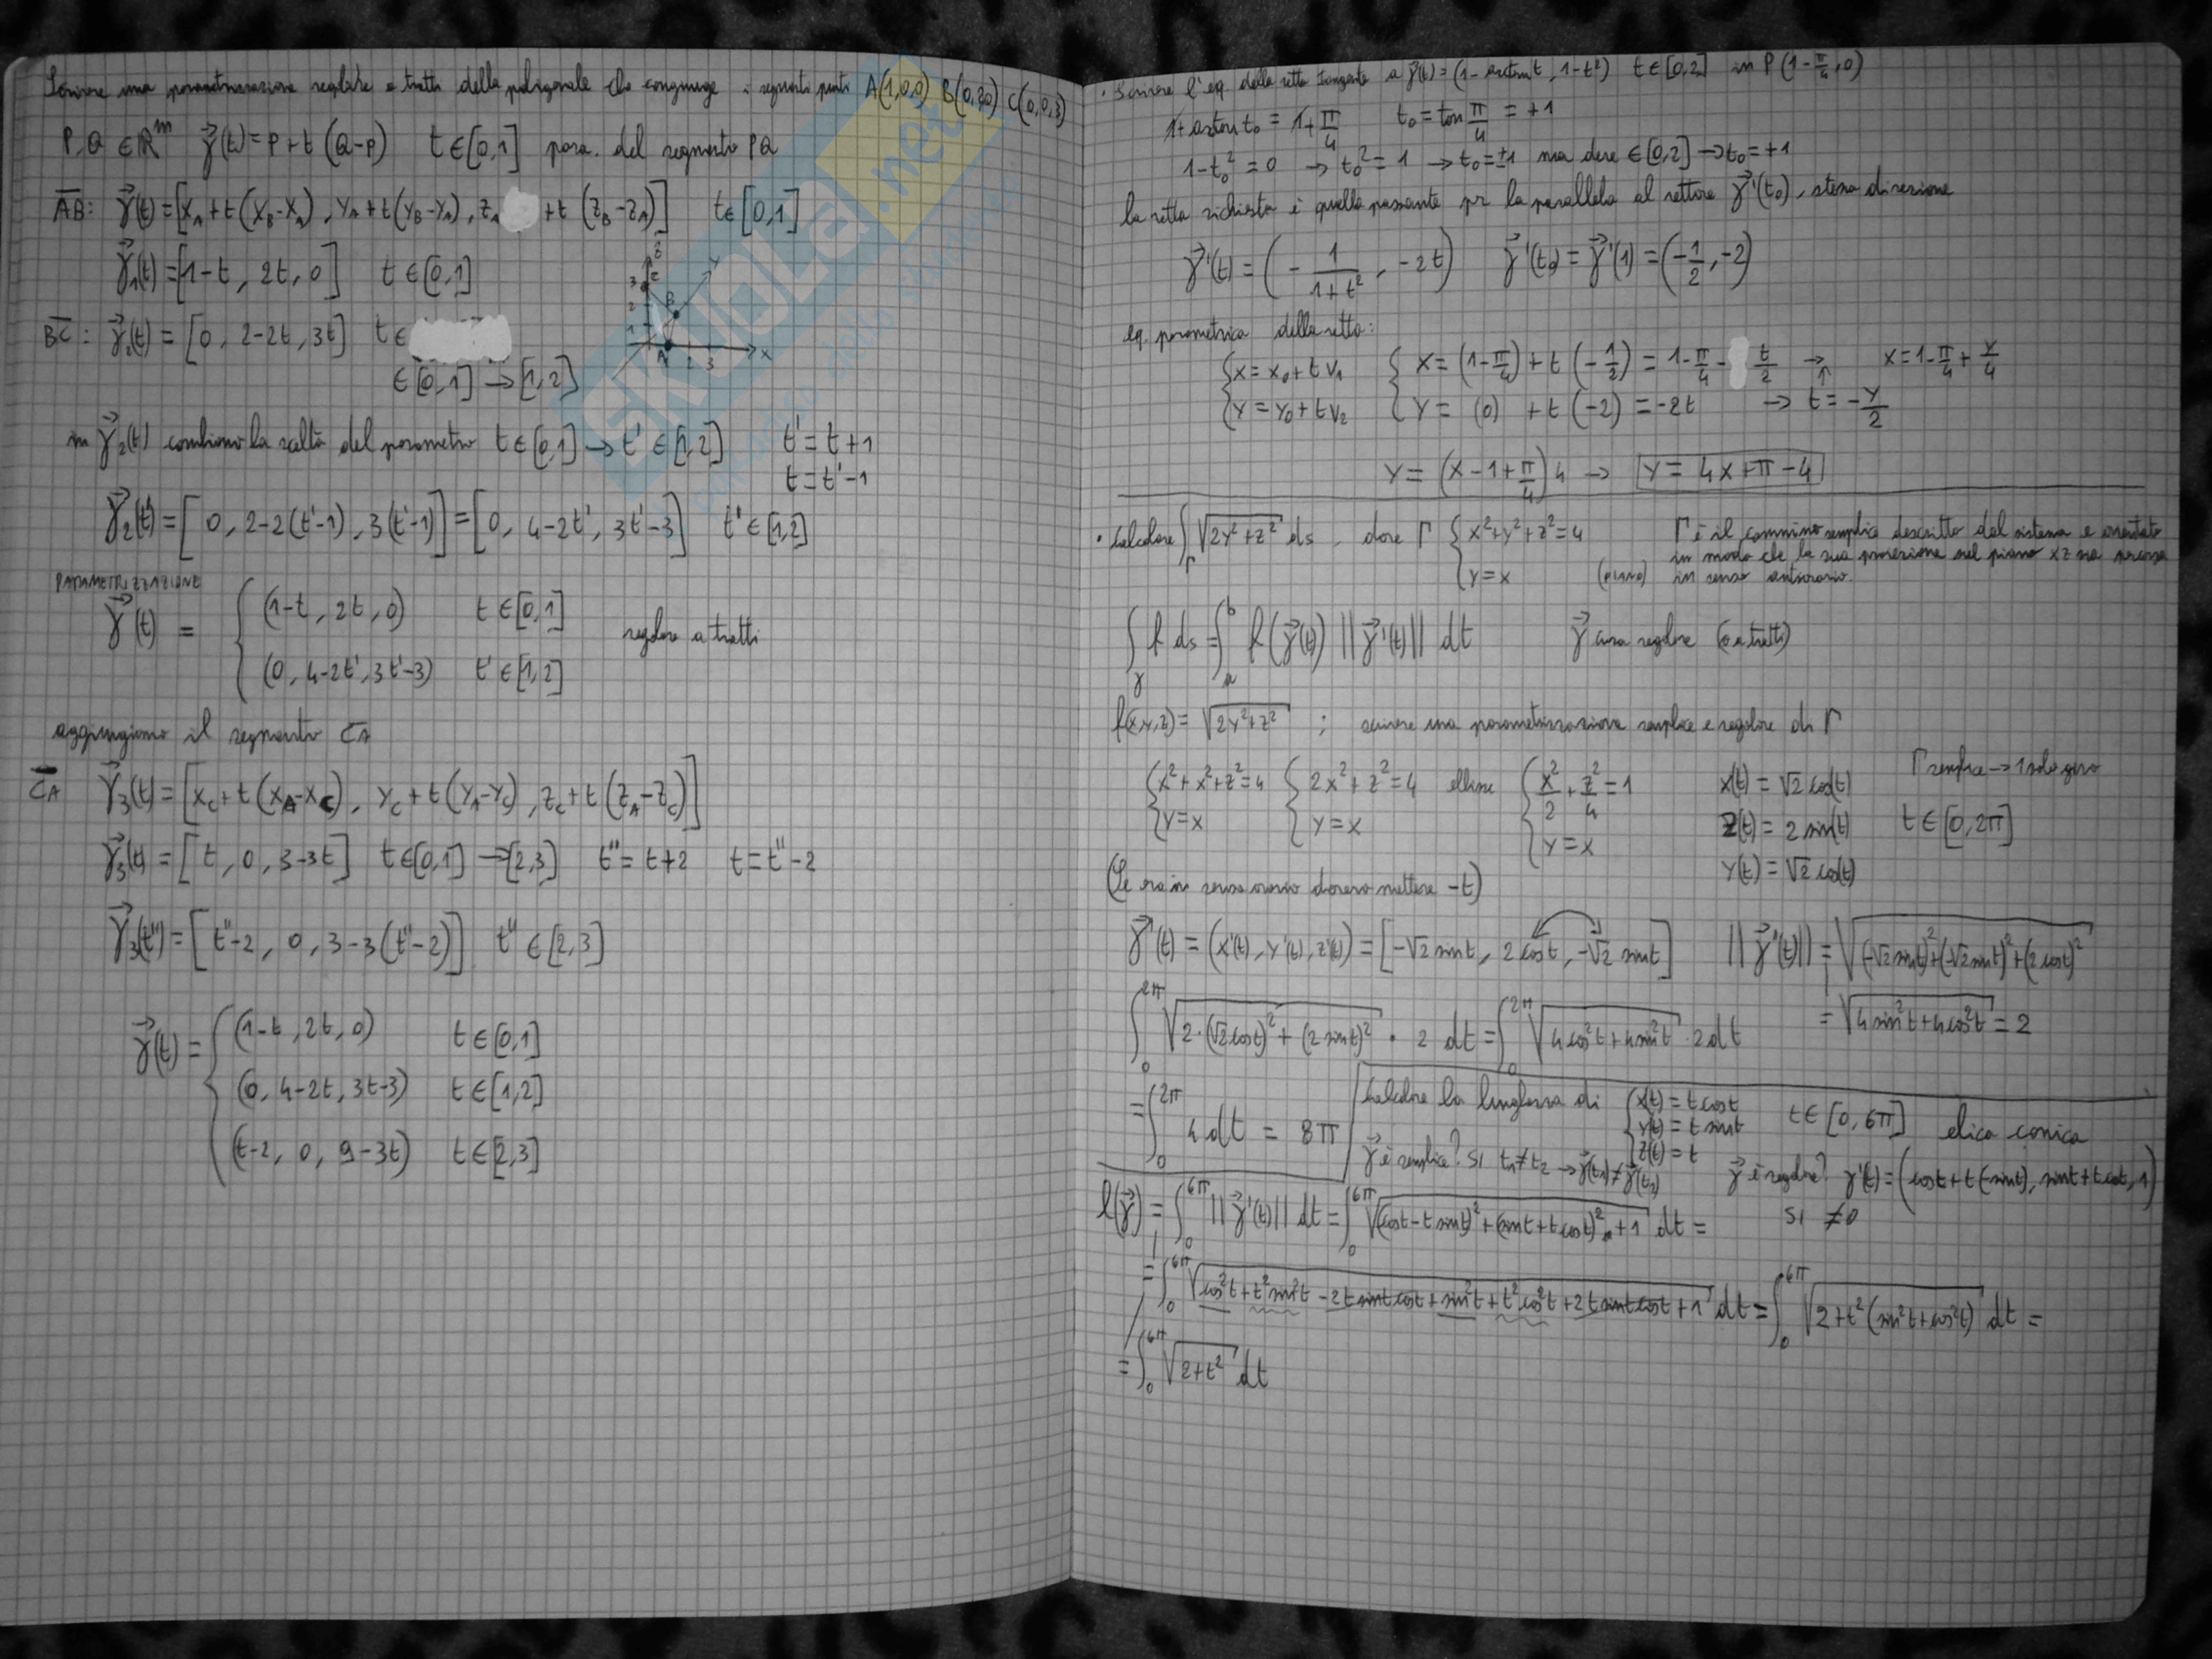 Scrivere una parametrizzazione regolare a tratti della poligonale che congiunge i seguenti punti A(1,0,0) B(0,2,0) C(0,0,3)
P,Q ∈ ℝᵐ γ⃗(t) = P + t (Q-P) t ∈ [0,1] para. del segmento PQ
AB: γ⃗(t) = [x_A + t(x_B-x_A), y_A + t(y_B-y_A), z_A + t (z_B-z_A)] t ∈ [0,1]
γ⃗₁(t) = [1-t, 2t, 0] t ∈ [0,1]
BC: γ⃗₂(t) = [0, 2-2t, 3t] t ∈
∈ [0,1] → [1,2]
z
y
3 C
2 B
1
A 2 3 x
in γ⃗₂(t) cambiamo la scelta del parametro t ∈ [0,1] → t' ∈ [1,2] t' = t+1
t = t'-1
γ⃗₂(t') = [0, 2-2(t'-1), 3(t'-1)] = [0, 4-2t', 3t'-3] t' ∈ [1,2]
PARAMETRIZZAZIONE
γ⃗(t) = { (1-t, 2t, 0) t ∈ [0,1] regolare a tratti
(0, 4-2t', 3t'-3) t' ∈ [1,2]
aggiungiamo il segmento CA
CA γ⃗₃(t) = [x_C + t(x_A-x_C), y_C + t(y_A-y_C), z_C + t(z_A-z_C)]
γ⃗₃(t) = [t, 0, 3-3t] t ∈ [0,1] → [2,3] t'' = t+2 t = t''-2
γ⃗₃(t'') = [t''-2, 0, 3-3(t''-2)] t'' ∈ [2,3]
γ⃗(t) = { (1-t, 2t, 0) t ∈ [0,1]
(0, 4-2t, 3t-3) t ∈ [1,2]
(t-2, 0, 9-3t) t ∈ [2,3]
• Scrivere l'eq. della retta tangente a γ⃗(t) = (1-arctan t, 1-t²) t ∈ [0,2] in P(1-π/4, 0)
1+arctan t₀ = 1+π/4 t₀ = tan π/4 = +1
1-t₀² = 0 → t₀² = 1 → t₀ = ±1 ma deve ∈ [0,2] → t₀ = +1
la retta richiesta è quella passante per la parallela al vettore γ⃗'(t₀), stessa direzione
γ⃗'(t) = (-1/(1+t²), -2t) γ⃗'(t₀) = γ⃗'(1) = (-1/2, -2)
eq. parametrica della retta:
{ x = x₀ + t v₁ { x = (1-π/4) + t(-1/2) = 1-π/4 - t/2 → x = 1-π/4 + y/4
y = y₀ + t v₂ y = (0) + t(-2) = -2t → t = -y/2
y = (x-1+π/4) 4 → y = 4x+π-4
• Calcolare ∫_Γ √(2y²+z²) ds, dove Γ { x²+y²+z²=4 Γ è il cammino semplice descritto dal sistema e orientato
y=x (piano) in modo che la sua proiezione nel piano xz sia percorsa
in senso antiorario.
∫_γ f ds = ∫_a^b f(γ⃗(t)) ||γ⃗'(t)|| dt γ⃗ curva regolare (o a tratti)
f(x,y,z) = √(2y²+z²) ; scrivere una parametrizzazione semplice e regolare di Γ
{ x²+x²+z²=4 { 2x²+z²=4 ellisse { x²/2 + z²/4 = 1 x(t) = √2 cos(t) Γ semplice → 1 solo giro
y=x y=x y=x z(t) = 2 sin(t) t ∈ [0,2π]
y(t) = √2 cos(t)
(Se era in senso orario dovevo mettere -t)
γ⃗'(t) = (x'(t), y'(t), z'(t)) = [-√2 sin t, 2 cos t, -√2 sin t] ||γ⃗'(t)|| = √((-√2 sin t)²+(-√2 sin t)²+(2 cos t)²)
= √(4 sin²t + 4 cos²t) = 2
∫_0^{2π} √(2·(√2 cos t)² + (2 sin t)²) · 2 dt = ∫_0^{2π} √(4cos²t+4sin²t) · 2 dt
= ∫_0^{2π} 4 dt = 8π
Calcolare la lunghezza di { x(t) = t cos t t ∈ [0, 6π] elica conica
y(t) = t sin t
z(t) = t
γ⃗ è semplice? SI t₁≠t₂ → γ⃗(t₁)≠γ⃗(t₂) γ⃗ è regolare? γ'(t) = (cost+t(-sint), sint+tcost, 1)
SI ≠0
l(γ⃗) = ∫_0^{6π} ||γ⃗'(t)|| dt = ∫_0^{6π} √((cost-t sint)²+(sint+t cost)²+1) dt =
= ∫_0^{6π} √(cos²t+t²sin²t-2t sint cost+sin²t+t²cos²t+2t sint cost+1) dt = ∫_0^{6π} √(2+t²(sin²t+cos²t)) dt =
= ∫_0^{6π} √(2+t²) dt
SKUOLA.net